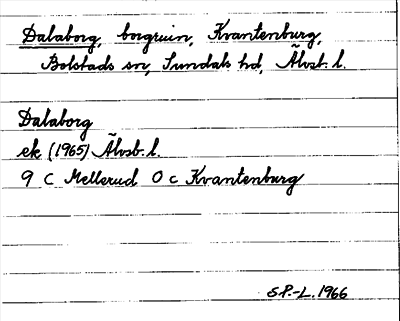 Dalaborg, borgruin, Kvantenburg,
Bolstads sn, Sundals hd, Älvsb. l.
Dalaborg
ek (1965) Älvsb. l.
9 C Mellerud O c Kvantenburg
S.P.-L. 1966